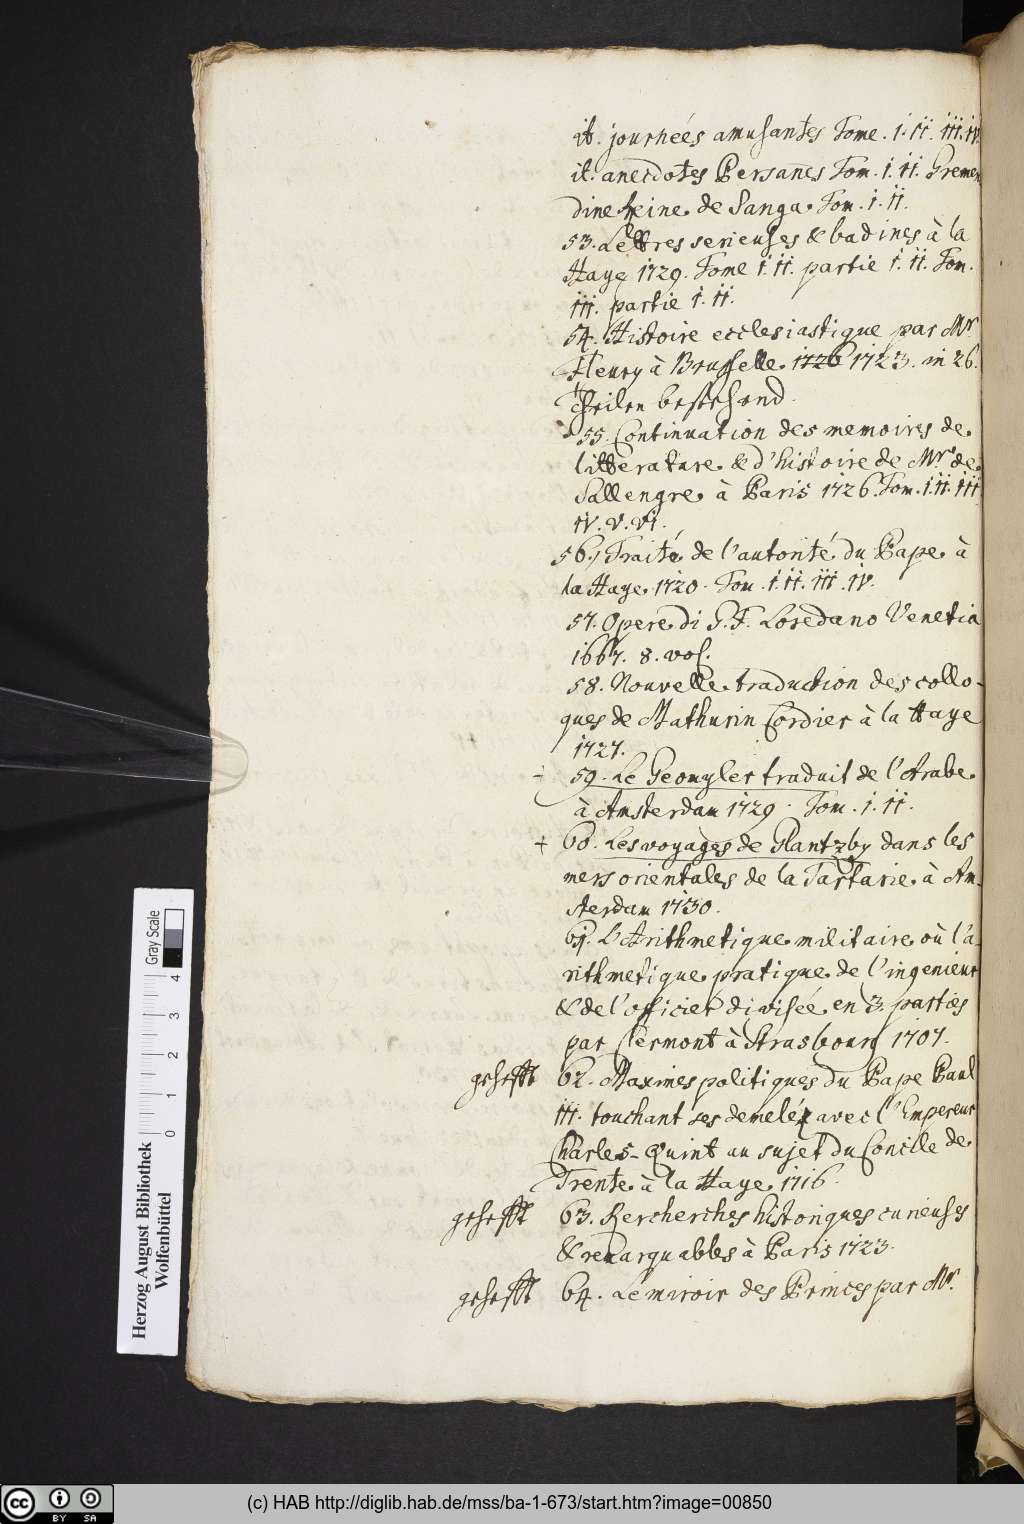 it. journeés amusantes Tome. I. II. III. IV.
it. anecdotes Persanes Tom. I. II. Gremen
dine Reine de Sanga Tom. I. II.
53. Lettres serieuses & badines à la
Haye 1729. Tome I. II. partie I. II. Tom.
III. partie I. II.
54. Histoire ecclesiastique par Mr
Fleury à Brusselle 1726 1723. in 26.
theilen bestehend.
55. Continuation des memoires de
litterature & d'histoire de Mr. de
Sallengre à Paris 1726. Tom. I. II. III
IV. V. VI.
56. Traité de l'autorité du Pape à
la Haye 1720. Tom. I. II. III. IV.
57. Opere di G. F. Loredano Venetia
1667. 8. vol.
58. Nouvelle traduction des collo-
ques de Mathurin Cordier à la Haye
1727.
+ 59. Le Geomyler traduit de l'Arabe
à Amsterdam 1729. Tom. I. II.
+ 60. Les voyages de Glantzby dans les
mers orientales de la Tartarie à Am-
sterdam 1730.
61. L'Arithmetique militaire où l'a-
rithmetique pratique de l'ingenieur
& de l'officier divisée en 3. parties
par Clermont à Strasbourg 1707.
gehefft 62. Maximes politiques du Pape Paul
III. touchant ses demeléz avec l'Empereur
Charles-Quint au sujet du Concile de
Trente à la Haye 1716.
gehefft 63. Rercherches historiques curieuses
& remarquables à Paris 1723.
gehefft 64. Le miroir des Princes par Mr.
Herzog August Bibliothek
Wolfenbüttel
0 1 2 3 4
Gray Scale
cc BY SA
(c) HAB http://diglib.hab.de/mss/ba-1-673/start.htm?image=00850